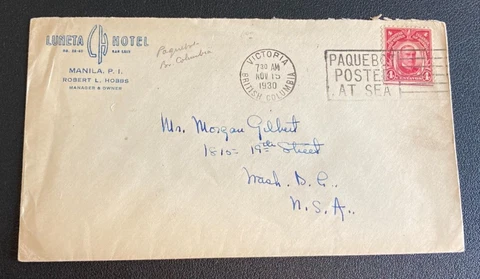 LUNETA LH HOTEL
MANILA, P. I.
ROBERT L. HOBBS
MANAGER & OWNER
Paquebot
Br. Columbia
VICTORIA
7 30 AM
NOV 15
1930
BRITISH COLUMBIA
PAQUEBOT
POSTED
AT SEA
Mr. Morgan Gilbert
1815 = 19th Street
Wash. D. C.
U. S. A.